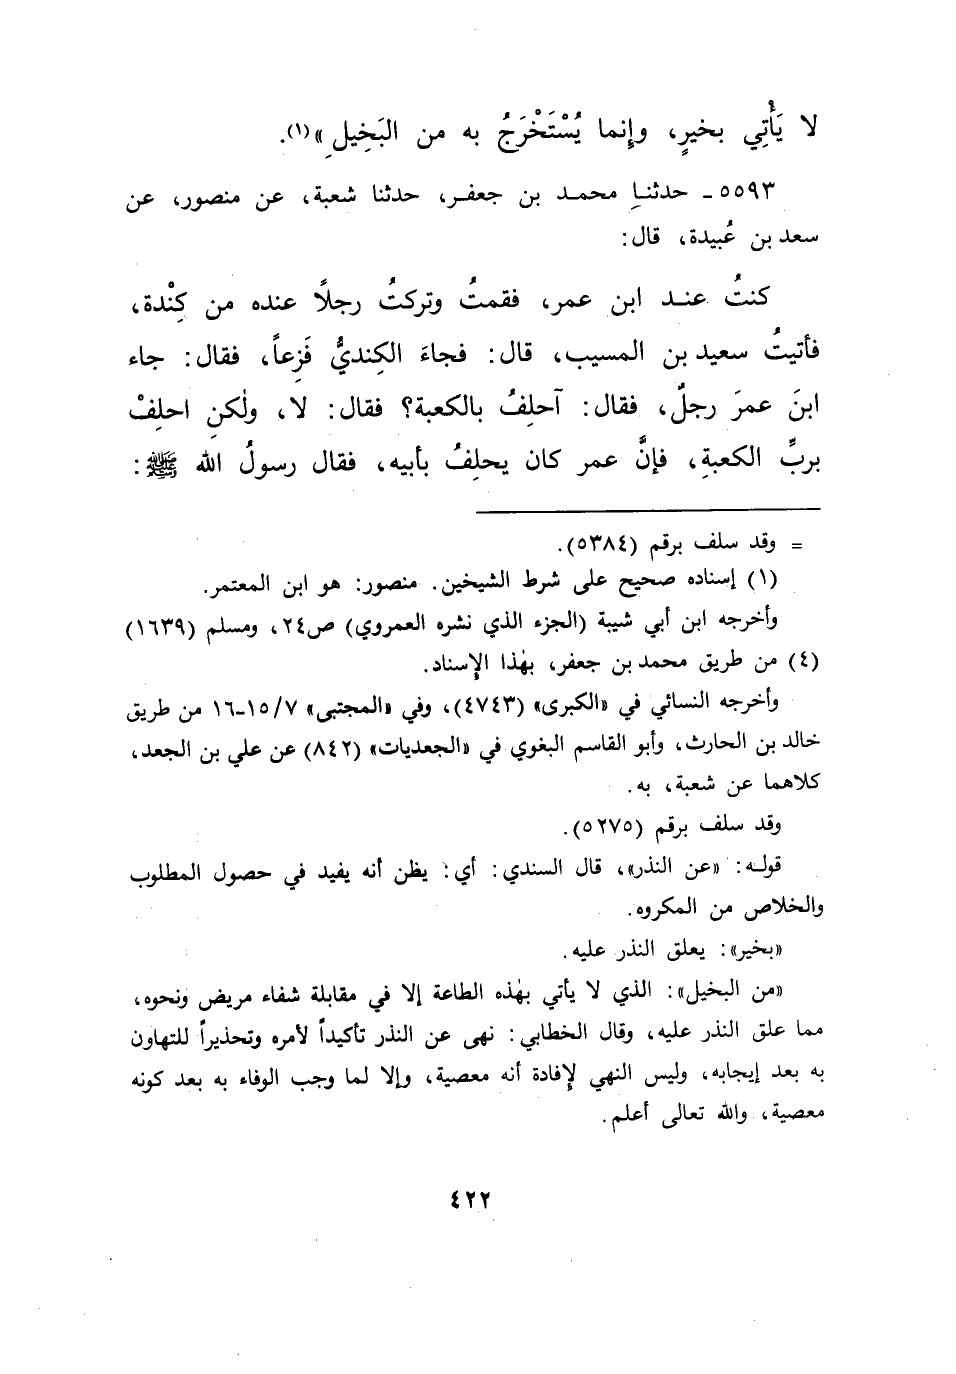 لا يَأْتِي بخيرٍ، وإِنما يُسْتَخْرَجُ به من البَخِيلِ»(١).
٥٥٩٣ـ حدثنا محمد بن جعفر، حدثنا شعبة، عن منصور، عن
سعد بن عُبيدة، قال:
كنتُ عند ابن عمر، فقمتُ وتركتُ رجلًا عنده من كِنْدة،
فأتيتُ سعيد بن المسيب، قال: فجاءَ الكِنديُّ فَزِعاً، فقال: جاء
ابنَ عمرَ رجلٌ، فقال: آحلِفُ بالكعبة؟ فقال: لا، ولٰكنِ احلِفْ
بربِّ الكعبةِ، فإنَّ عمر كان يحلِفُ بأبيه، فقال رسولُ الله ﷺ:
= وقد سلف برقم (٥٣٨٤).
(١) إسناده صحيح على شرط الشيخين. منصور: هو ابن المعتمر.
وأخرجه ابن أبي شيبة (الجزء الذي نشره العمروي) ص٢٤، ومسلم (١٦٣٩)
(٤) من طريق محمد بن جعفر، بهٰذا الإِسناد.
وأخرجه النسائي في «الكبرى» (٤٧٤٣)، وفي «المجتبى» ١٥/٧ـ١٦ من طريق
خالد بن الحارث، وأبو القاسم البغوي في «الجعديات» (٨٤٢) عن علي بن الجعد،
كلاهما عن شعبة، به.
وقد سلف برقم (٥٢٧٥).
قوله: «عن النذر»، قال السندي: أي: يظن أنه يفيد في حصول المطلوب
والخلاص من المكروه.
«بخير»: يعلق النذر عليه.
«من البخيل»: الذي لا يأتي بهٰذه الطاعة إلا في مقابلة شفاء مريض ونحوه،
مما علق النذر عليه، وقال الخطابي: نهى عن النذر تأكيداً لأمره وتحذيراً للتهاون
به بعد إيجابه، وليس النهي لإفادة أنه معصية، وإلا لما وجب الوفاء به بعد كونه
معصية، والله تعالى أعلم.
٤٢٢